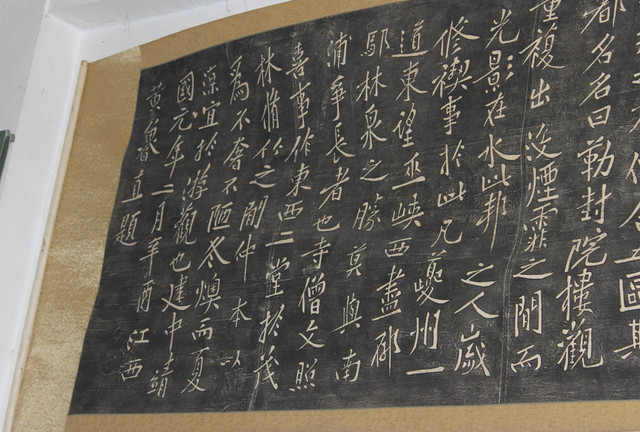 五圃其
都名名曰勒封院樓觀
重複出沒煙霏之間而
光影在水此邦之人歲
修禊事於此凡夔州一
道東望巫峽西盡
林泉之勝莫與南
浦爭長者也寺僧文照
喜事作東西二堂於茂
林脩竹之間仲本以
為不奢不陋冬燠而夏
涼宜於遊觀也建中靖
國元年二月辛酉江西
黃魯直題